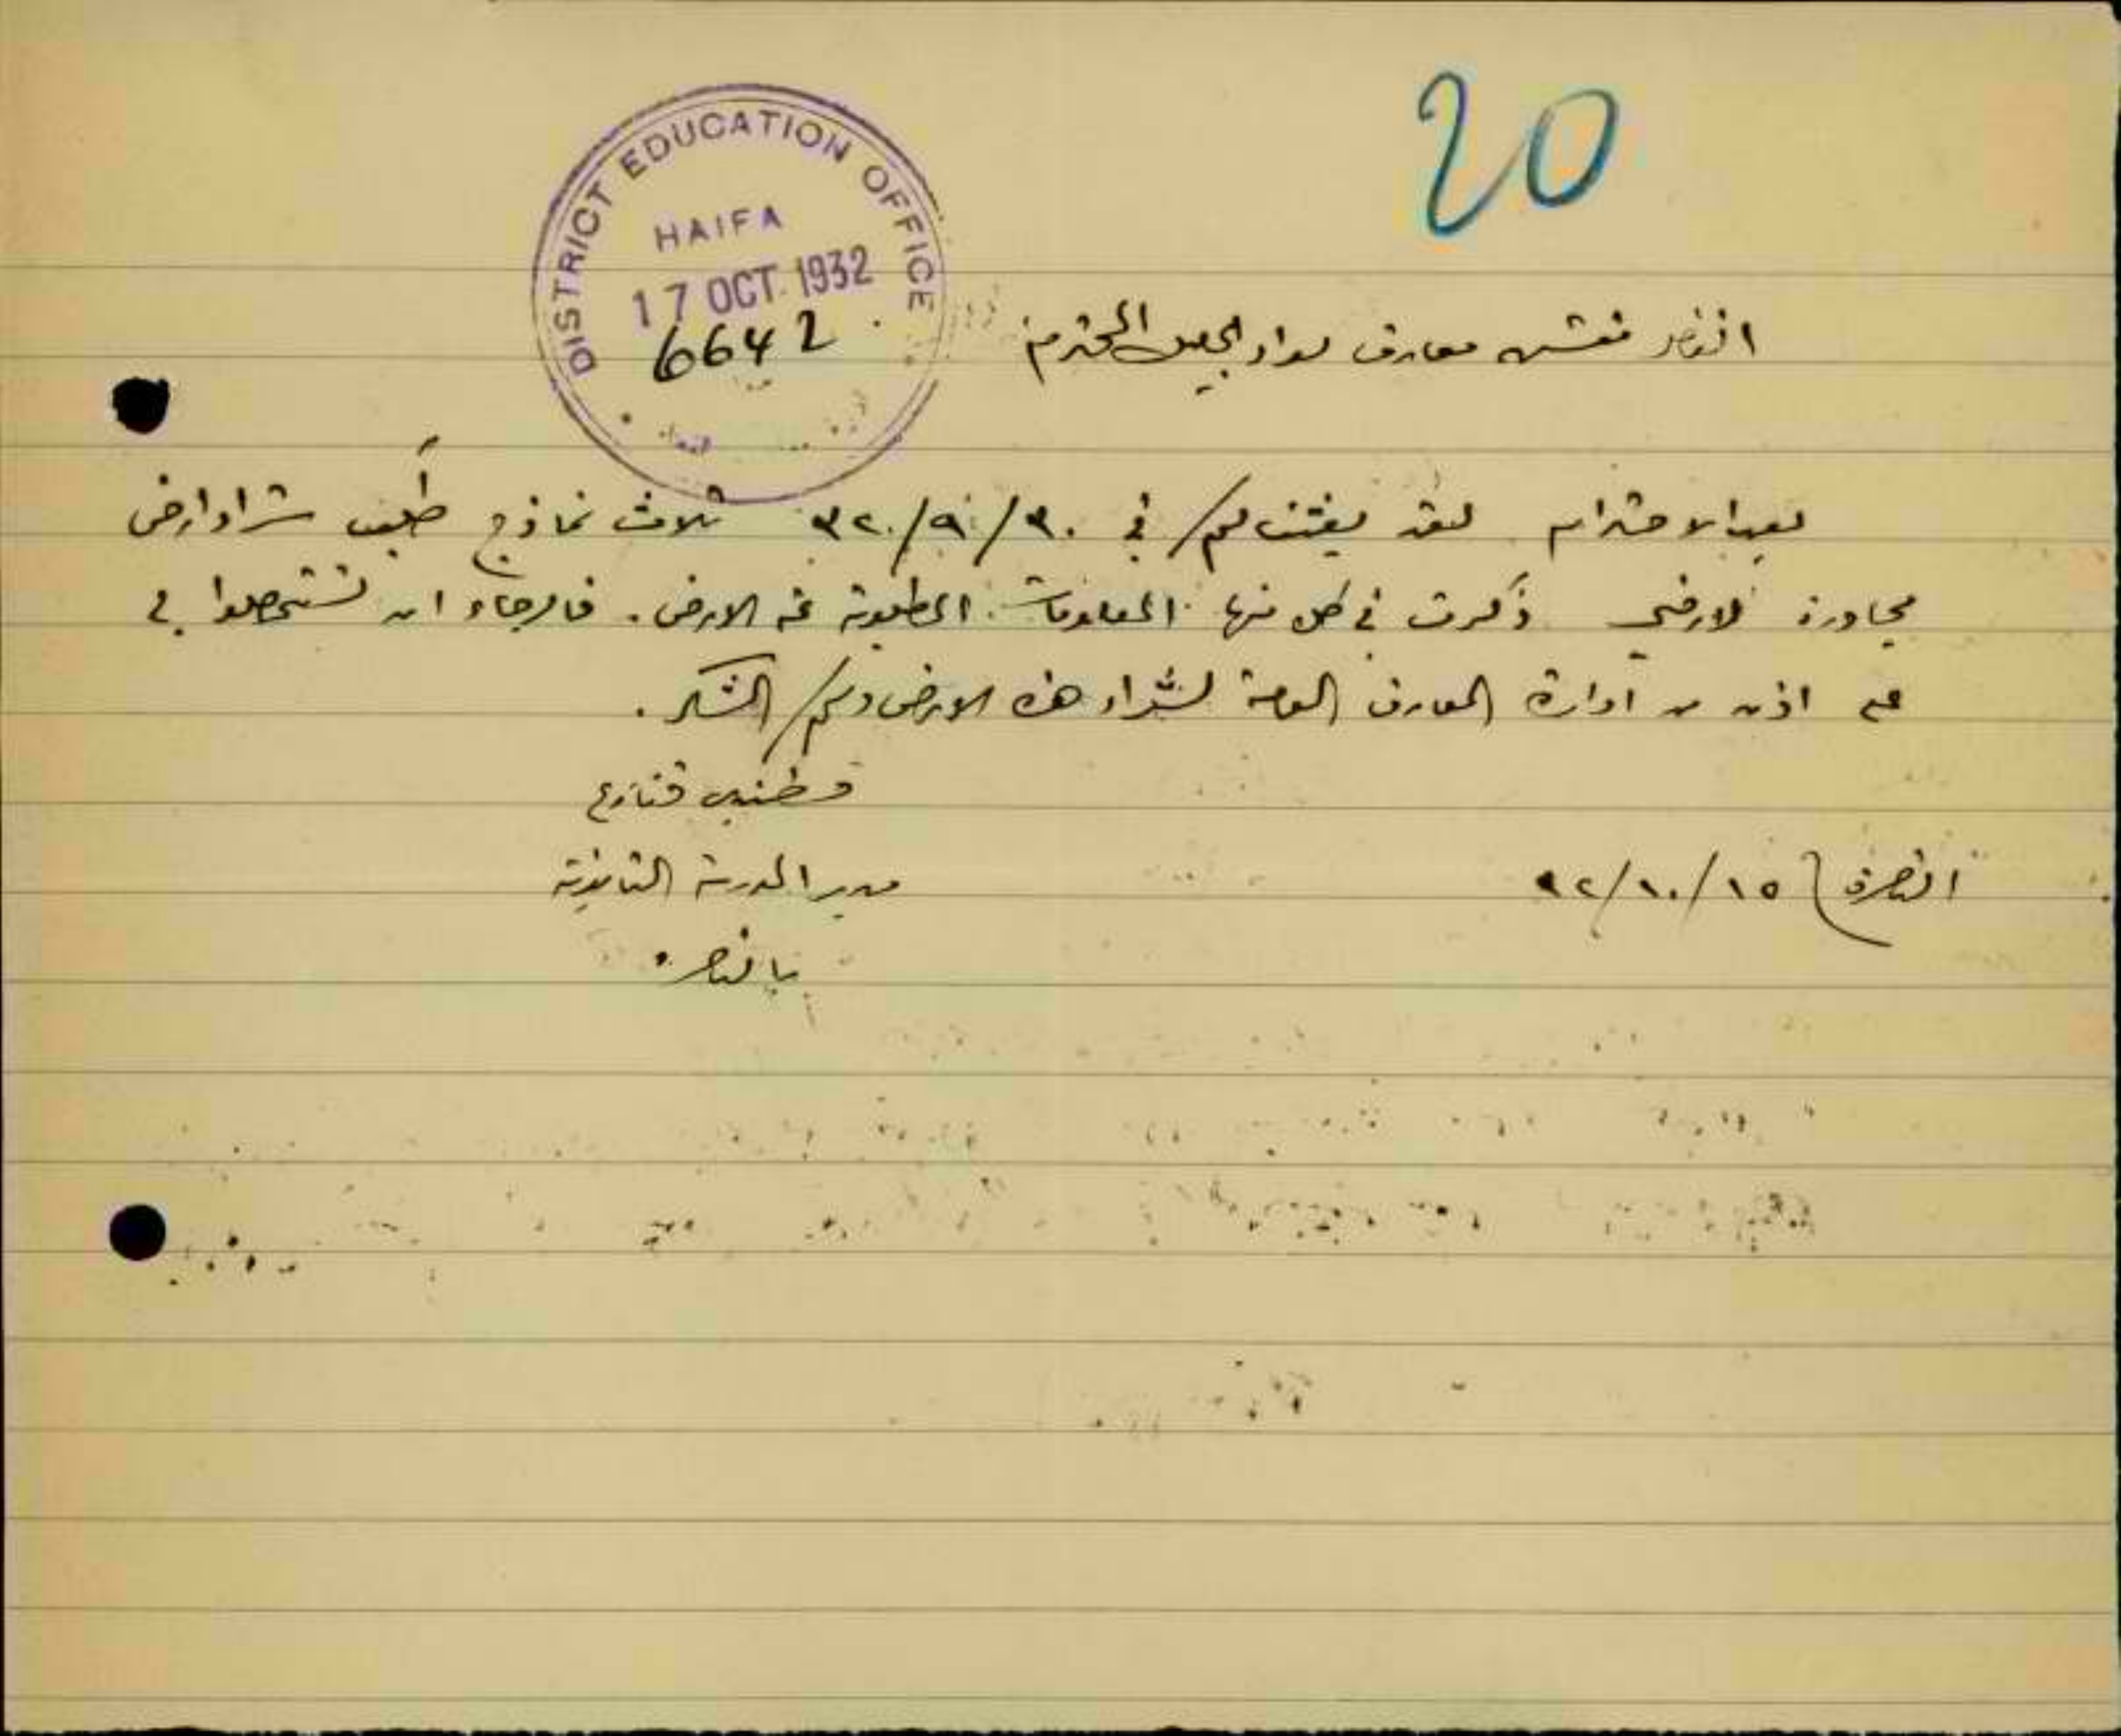 20
DISTRICT EDUCATION OFFICE
HAIFA
17 OCT. 1932
6642
مفتش معارف لواء الجليل المحترم
بعد الاحترام لقد بعثت لكم في ٣٠/٩/٣٢ ثلاث نماذج طلب شراء ارض
مجاورة لارضي ذكرت في كل منها المعلومات المطلوبة عن الارض. فالرجاء ان تستحصلوا لي
على اذن من ادارة المعارف العامة لشراء هذه الارض ولكم الشكر.
قسطندي قنازع
مدير المدرسة الثانوية
بالناصرة
الناصرة ١٥/١٠/٣٢